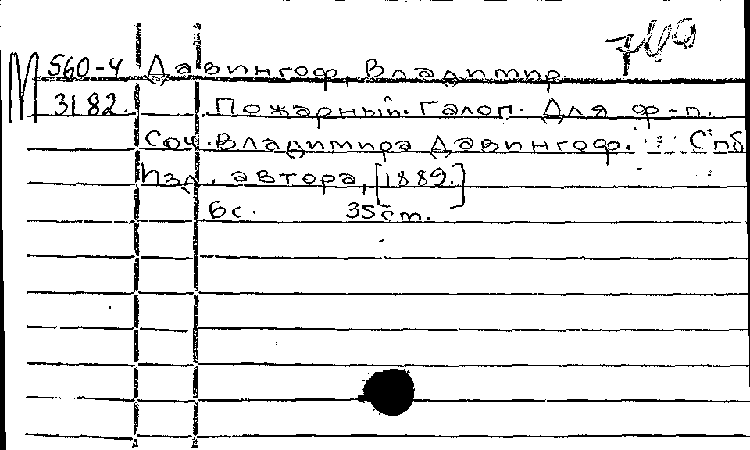 740
М 560-4 Давингоф, Владимир
3182. Пожарный. Галоп. Для ф-п.
Соч. Владимира Давингоф. Спб
Изд. автора, [1889.]
6с. 35см.